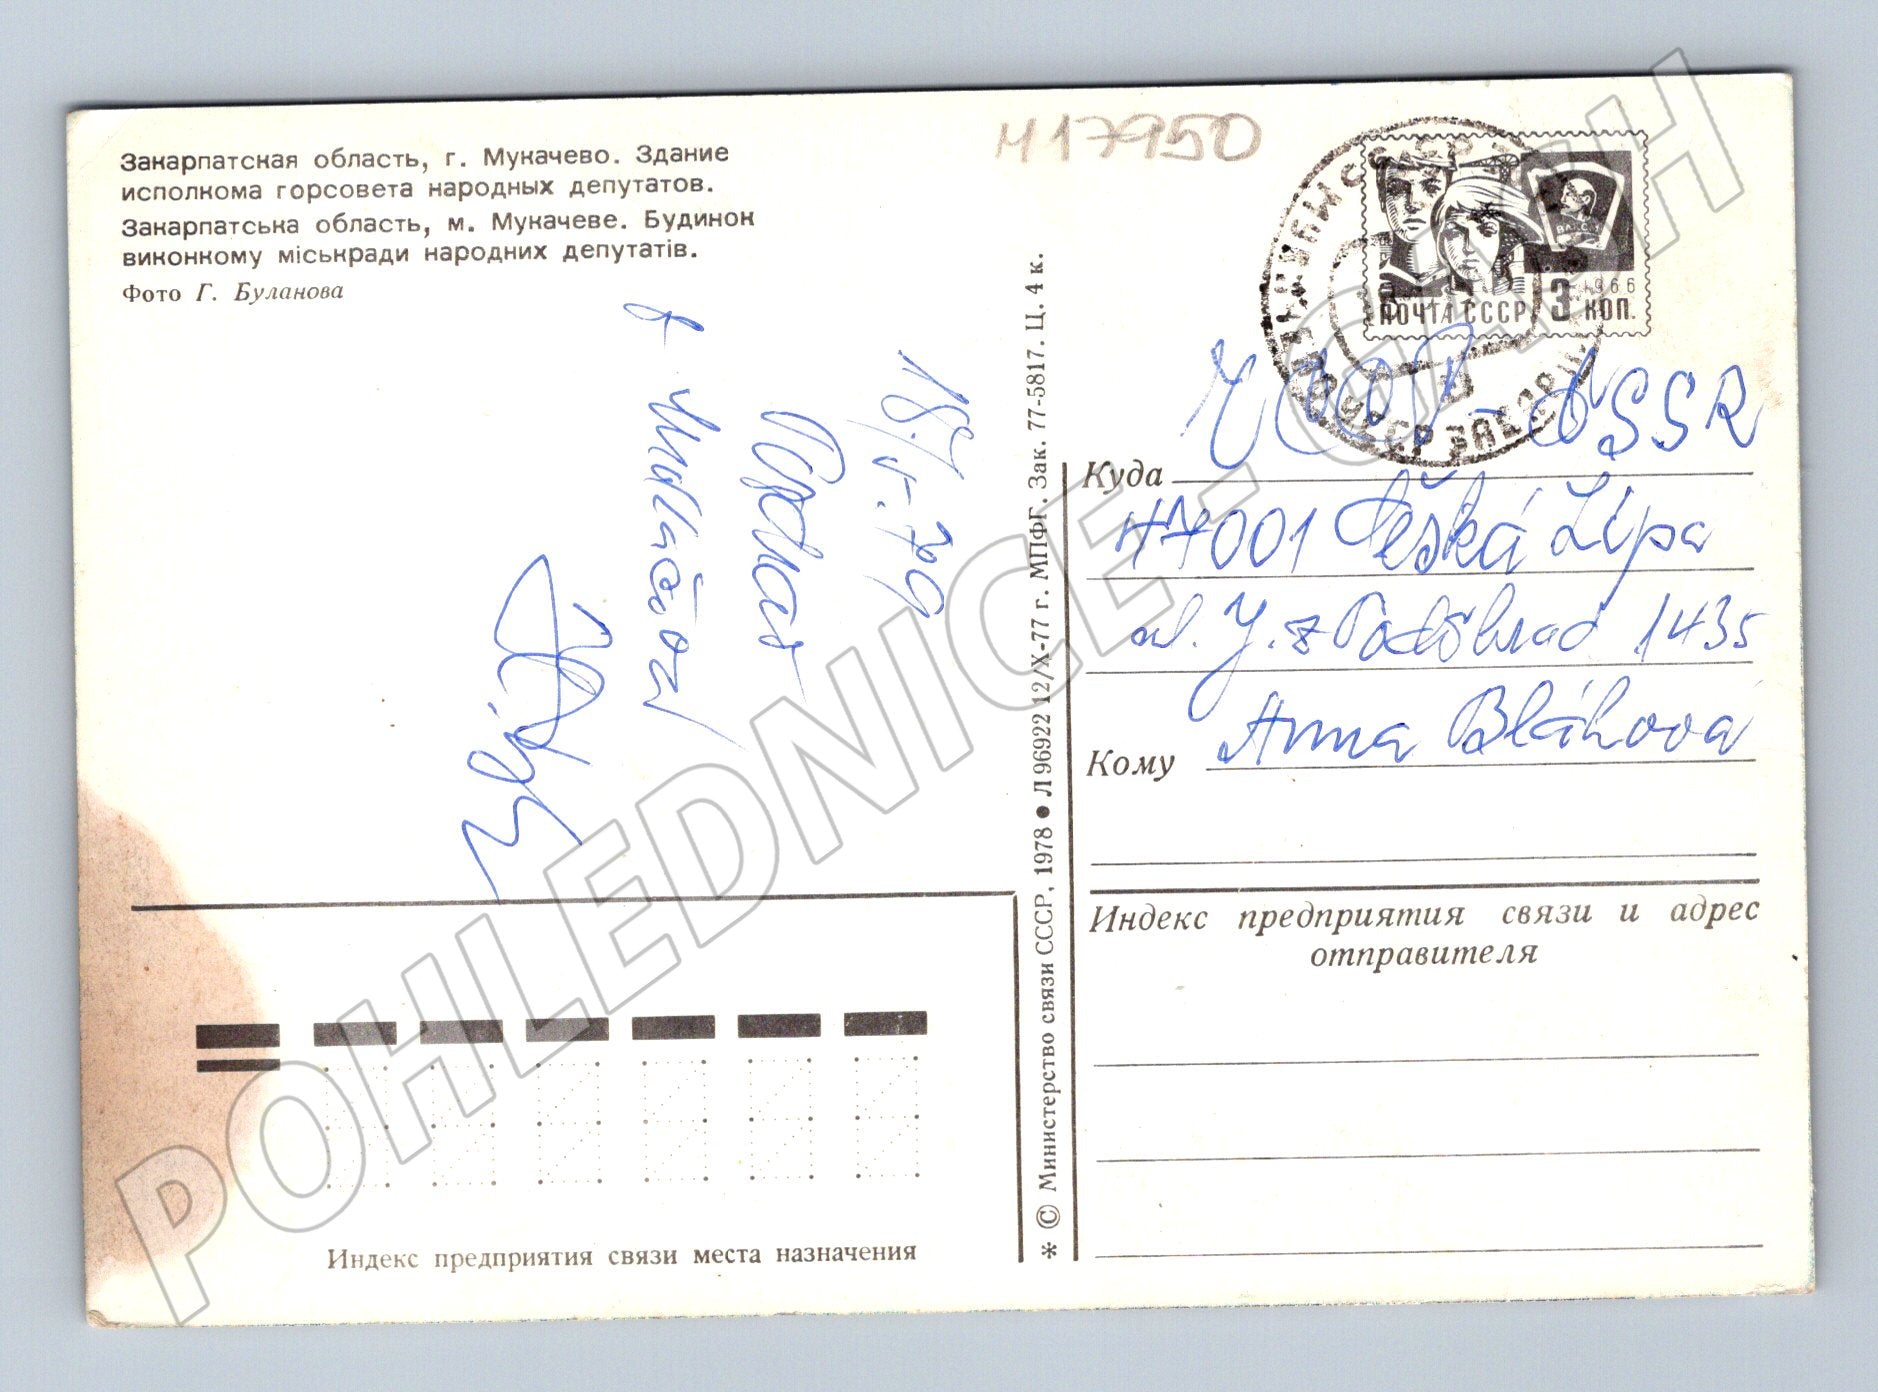 Закарпатская область, г. Мукачево. Здание
исполкома горсовета народных депутатов.
Закарпатська область, м. Мукачеве. Будинок
виконкому міськради народних депутатів.
Фото Г. Буланова
417950
ПОЧТА СССР 3 КОП.
1966
ВЛКСМ
ČSSR
Куда
47001 Česká Lípa
ul. J. z Poděbrad 1435
Кому Anna Bláhová
Индекс предприятия связи и адрес
отправителя
Индекс предприятия связи места назначения
* © Министерство связи СССР, 1978 ● Л 96922 12/X-77 г. МПФГ. Зак. 77-5817. Ц. 4 к.
Pozdrav
z Mukačeva
POHLEDNICE - GASH